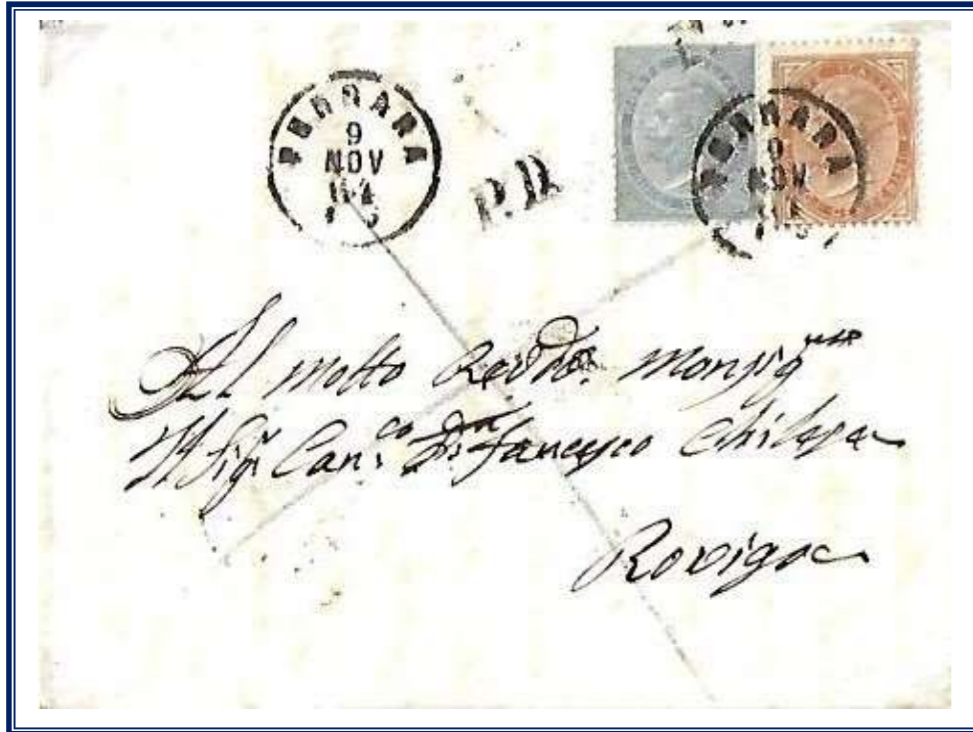 FERRARA
9
NOV
64
P.D.
FERRARA
9
NOV
Al Molto Revdo. Monsig
Il Sig. Can.co Dn Fancesco
Rovigo